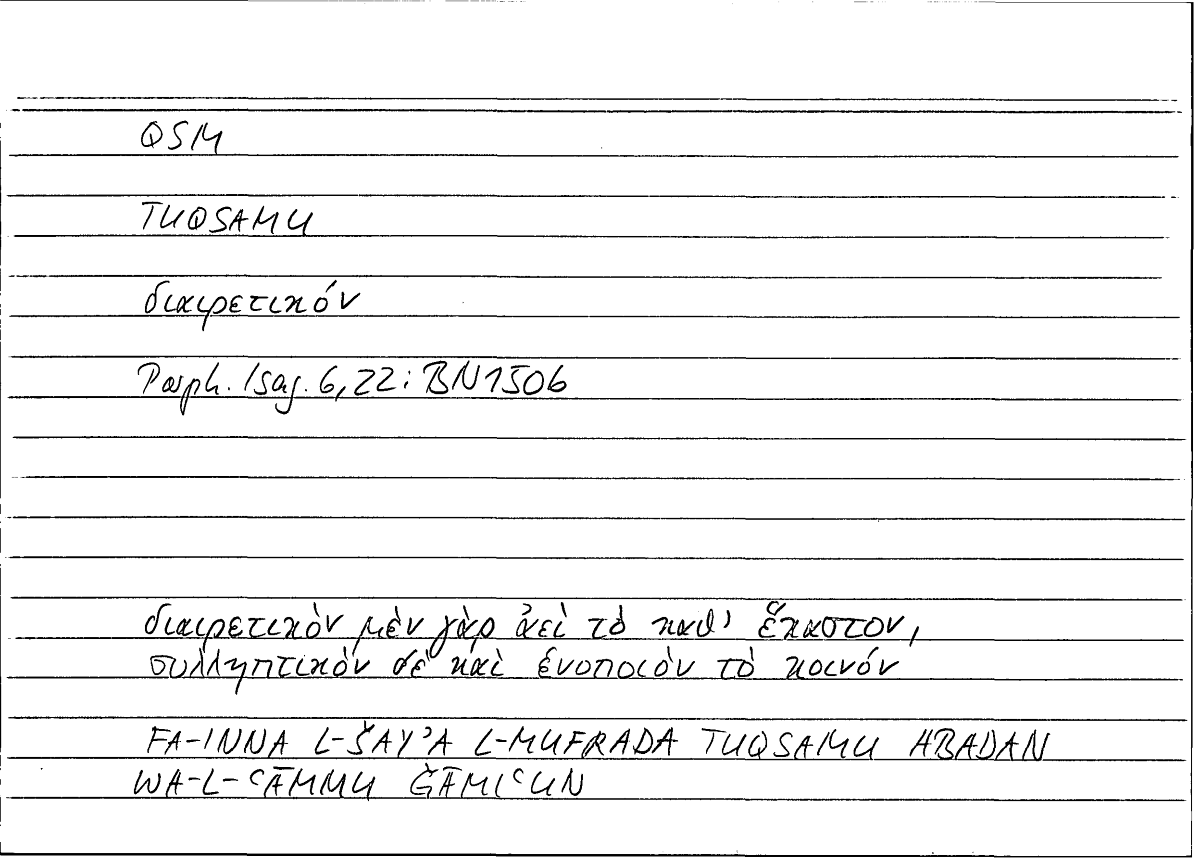 QSM
TUQSAMU
διαιρετικόν
Porph. Isag. 6,22: BN1506
διαιρετικὸν μὲν γὰρ ἀεὶ τὸ καθ' ἕκαστον,
συλληπτικὸν δὲ καὶ ἑνοποιὸν τὸ κοινόν
FA-INNA L-ŠAY'A L-MUFRADA TUQSAMU ABADAN
WA-L-ʿĀMMU ǦĀMIʿUN